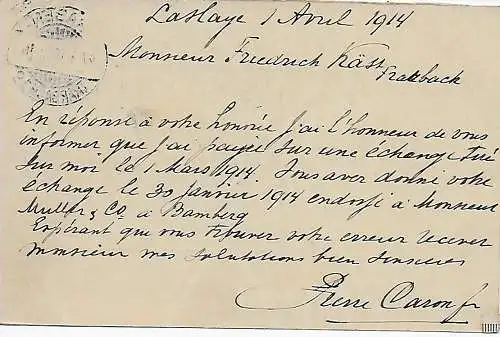 LaHaye 1 Avril 1914
Monsieur Friedrich Käst
En réponse à votre honorée j'ai l'honneur de vous
informer que j'ai payée sur une échange tiré
sur moi le 1 Mars 1914. Vous aver donné votre
échange le 30 janvier 1914 endossé à Monsieur
Muller & Co. à Bamberg
Espérant que vous trouver votre erreur recever
monsieur mes salutations bien sinceres
Pierre Caron fr